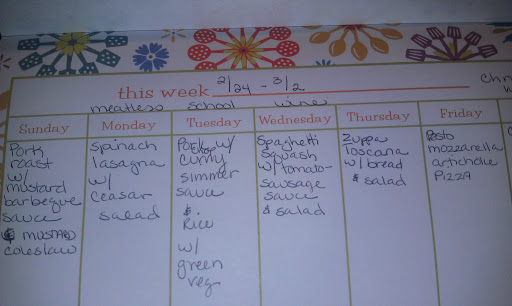 this week 2/24 - 3/2
meatless school wine
Sunday Monday Tuesday Wednesday Thursday Friday
Pork
roast
w/
mustard
barbeque
sauce
& MUSTARD
coleslaw
spinach
lasagna
w/
ceasar
salad
Pork
Chop w/
curry
simmer
sauce
&
Rice
w/
green
veg
Spaghetti
squash
w/ tomato-
sausage
sauce
& salad
Zuppa
Toscana
w/ bread
& salad
Pesto
mozzarella
artichoke
Pizza